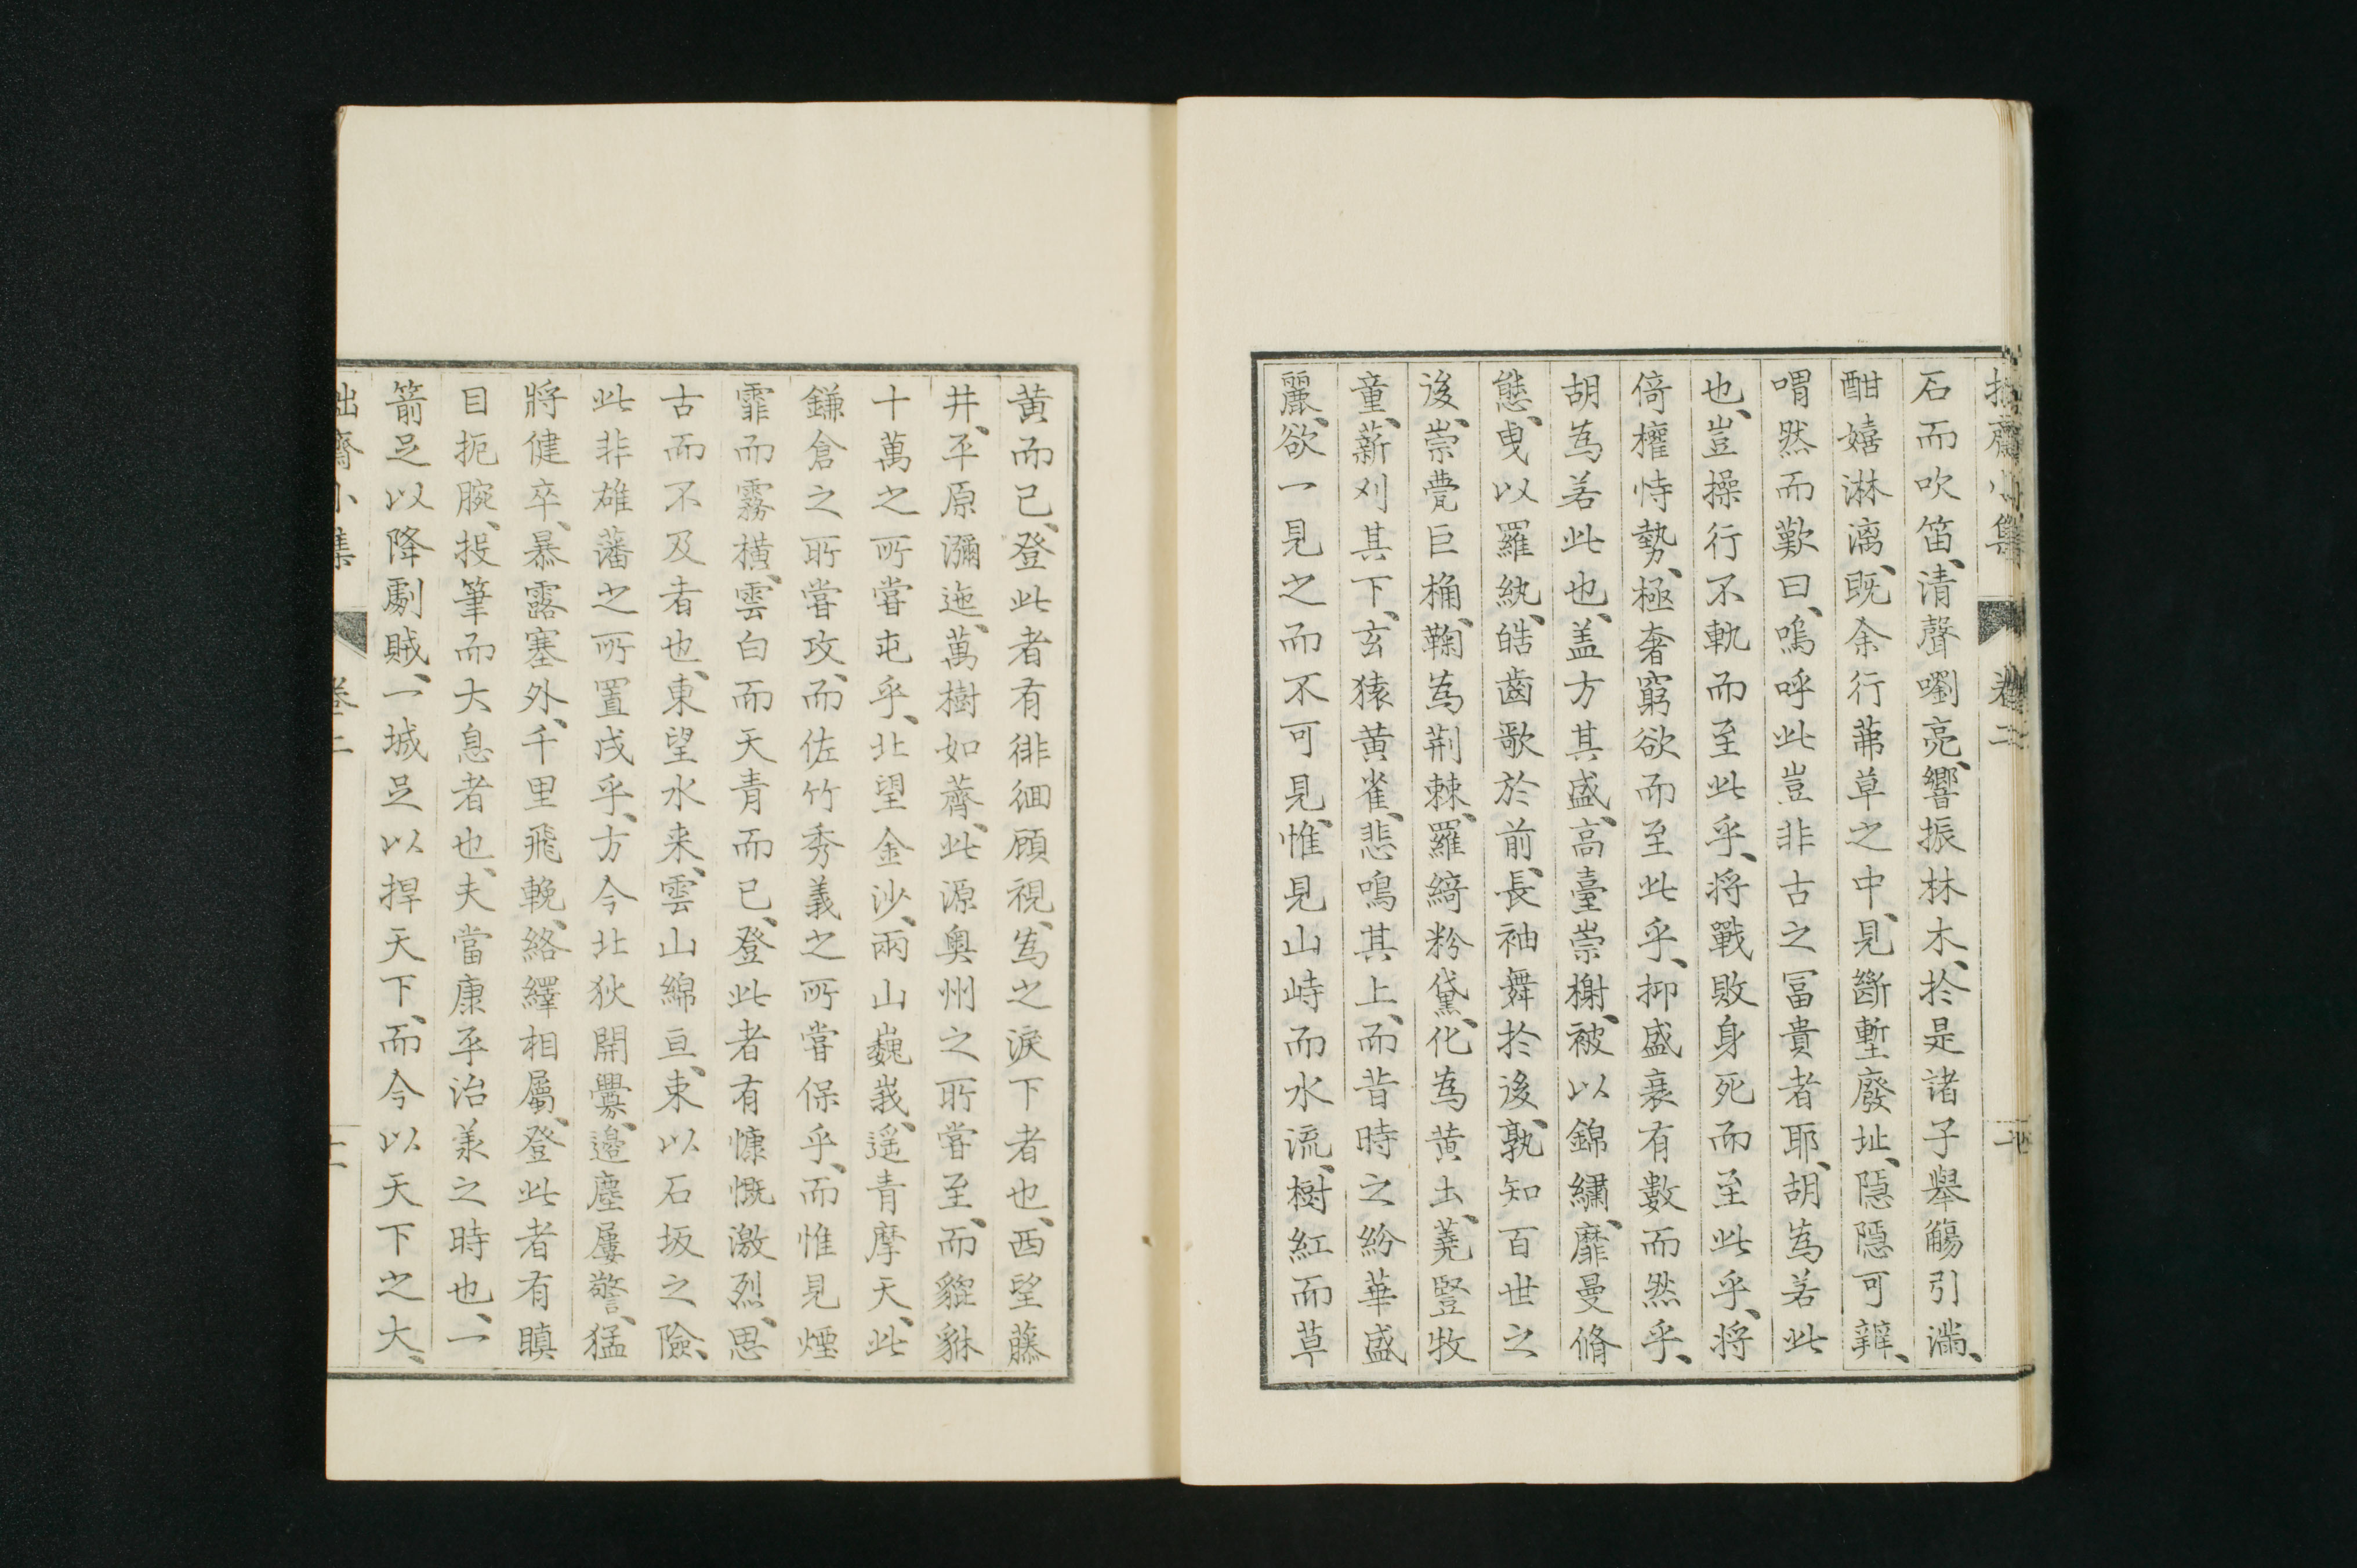 拙齋小集 卷二 十
石而吹笛、清聲嚠亮、響振林木、於是諸子舉觴引滿、
酣嬉淋漓、既余行茀草之中、見斷塹廢址、隱隱可辨、
喟然而歎曰、嗚呼此豈非古之冨貴者耶、胡為若此
也、豈操行不軌而至此乎、將戰敗身死而至此乎、將
倚權恃勢、極奢窮欲而至此乎、抑盛衰有數而然乎、
胡為若此也、盖方其盛、高臺崇榭、被以錦繡、靡曼脩
態、曳以羅紈、皓齒歌於前、長袖舞於後、孰知百世之
後、崇甍巨桷、鞠為荆棘、羅綺粉黛、化為黄土、蕘豎牧
童、薪刈其下、玄猿黄雀、悲鳴其上、而昔時之紛華盛
麗、欲一見之而不可見、惟見山峙而水流、樹紅而草
黄而已、登此者有徘徊顧視、為之淚下者也、西望藤
井、平原瀰迤、萬樹如薺、此源奥州之所嘗至、而貔貅
十萬之所嘗屯乎、北望金沙、兩山巍峩、遥青摩天、此
鎌倉之所嘗攻、而佐竹秀義之所嘗保乎、而惟見煙
霏而霧橫、雲白而天青而已、登此者有慷慨激烈、思
古而不及者也、東望水来、雲山綿亘、束以石坂之險、
此非雄藩之所置戍乎、方今北狄開釁、邉塵屢警、猛
將健卒、暴露塞外、千里飛輓、絡繹相屬、登此者有瞋
目扼腕、投筆而大息者也、夫當康平治羕之時也、一
箭足以降劇賊、一城足以捍天下、而今以天下之大、
拙齋小集 卷二